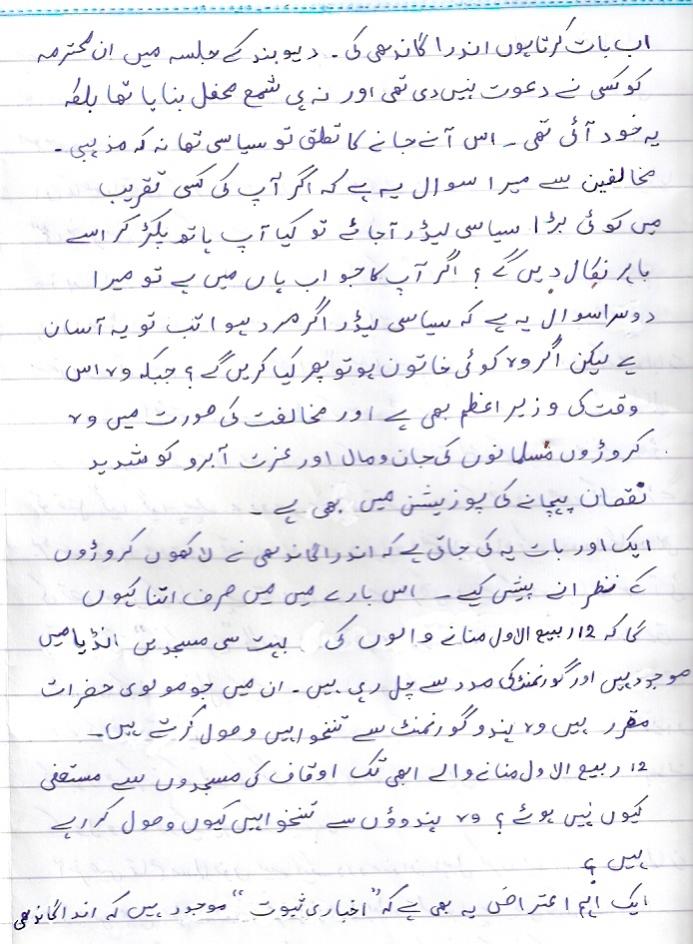 اب بات کرتا ہوں اندرا گاندھی کی۔ دیوبند کے جلسہ میں ان محترمہ
کو کسی نے دعوت نہیں دی تھی اور نہ ہی شمع محفل بنایا تھا بلکہ
یہ خود آئی تھی۔ اس آنے جانے کا تعلق تو سیاسی تھا نہ کہ مذہبی۔
مخالفین سے میرا سوال یہ ہے کہ اگر آپ کی کسی تقریب
میں کوئی بڑا سیاسی لیڈر آ جائے تو کیا آپ ہاتھ پکڑ کر اسے
باہر نکال دیں گے؟ اگر آپ کا جواب ہاں میں ہے تو میرا
دوسرا سوال یہ ہے کہ سیاسی لیڈر اگر مرد ہوا تب تو یہ آسان
ہے لیکن اگر وہ کوئی خاتون ہو تو پھر کیا کریں گے؟ جبکہ وہ اس
وقت کی وزیر اعظم بھی ہے اور مخالفت کی صورت میں وہ
کروڑوں مسلمانوں کی جان و مال اور عزت آبرو کو شدید
نقصان پہچانے کی پوزیشن میں بھی ہے۔
ایک اور بات یہ کی جاتی ہے کہ اندرا گاندھی نے لاکھوں کروڑوں
کے نظرانے پیش کیے۔ اس بارے میں میں صرف اتنا کہوں
گا کہ 12 ربیع الاول منانے والوں کی بہت سی مسجدیں انڈیا میں
موجود ہیں اور گورنمنٹ کی مدد سے چل رہی ہیں۔ ان میں جو مولوی حضرات
مقرر ہیں وہ ہندو گورنمنٹ سے تنخواہیں وصول کرتے ہیں۔
12 ربیع الاول منانے والے ابھی تک اوقاف کی مسجدوں سے مستعفی
کیوں نہیں ہوئے؟ وہ ہندوؤں سے تنخواہیں کیوں وصول کر رہے
ہیں؟
ایک اہم اعتراض یہ بھی ہے کہ "اخباری ثبوت" موجود ہیں کہ اندا گاندھی